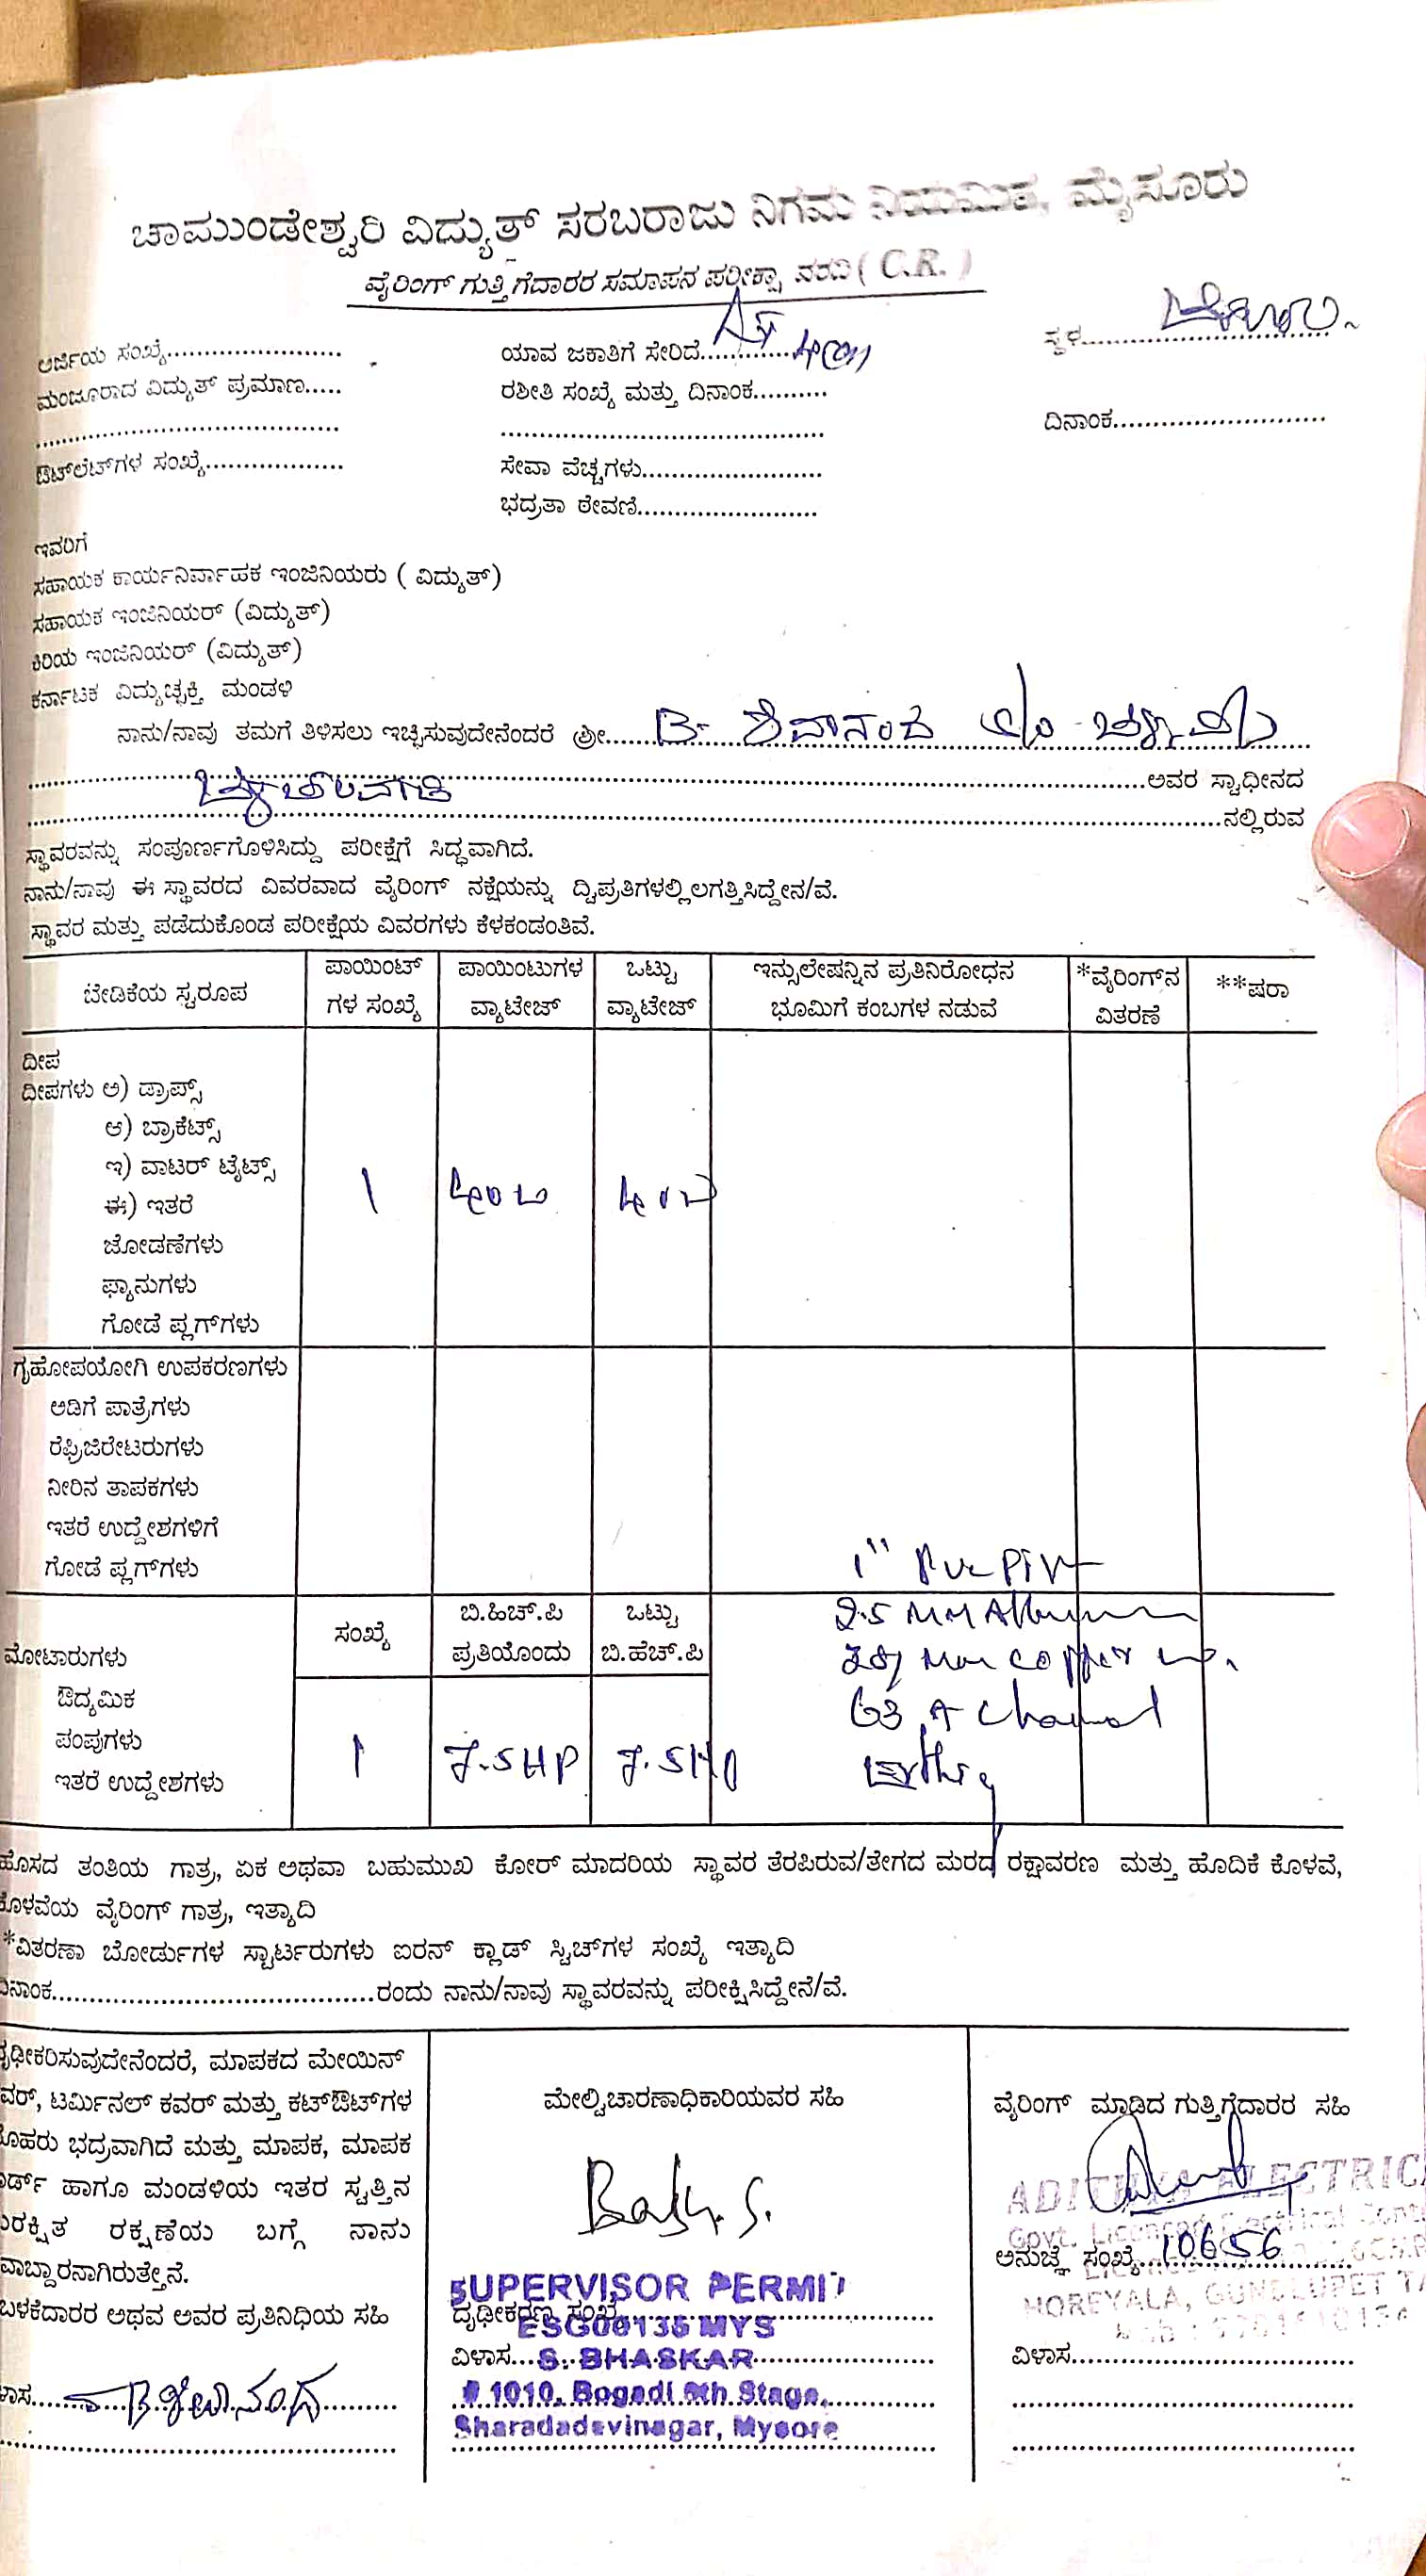 ಚಾಮುಂಡೇಶ್ವರಿ ವಿದ್ಯುತ್ ಸರಬರಾಜು ನಿಗಮ ನಿಯಮಿತ, ಮೈಸೂರು
ವೈರಿಂಗ್ ಗುತ್ತಿಗೆದಾರರ ಸಮಾಪನ ಪರೀಕ್ಷಾ ವರದಿ ( C.R. )
ಅರ್ಜಿಯ ಸಂಖ್ಯೆ........................ ಯಾವ ಜಕಾತಿಗೆ ಸೇರಿದೆ............ ಸ್ಥಳ................
ಮಂಜೂರಾದ ವಿದ್ಯುತ್ ಪ್ರಮಾಣ..... ರಶೀತಿ ಸಂಖ್ಯೆ ಮತ್ತು ದಿನಾಂಕ.......... ದಿನಾಂಕ............................
ಔಟ್‌ಲೆಟ್‌ಗಳ ಸಂಖ್ಯೆ................... ಸೇವಾ ವೆಚ್ಚಗಳು........................
ಭದ್ರತಾ ಠೇವಣಿ........................
ಇವರಿಗೆ
ಸಹಾಯಕ ಕಾರ್ಯನಿರ್ವಾಹಕ ಇಂಜಿನಿಯರು ( ವಿದ್ಯುತ್)
ಸಹಾಯಕ ಇಂಜಿನಿಯರ್ (ವಿದ್ಯುತ್)
ಕಿರಿಯ ಇಂಜಿನಿಯರ್ (ವಿದ್ಯುತ್)
ಕರ್ನಾಟಕ ವಿದ್ಯುಚ್ಛಕ್ತಿ ಮಂಡಳಿ
ನಾನು/ನಾವು ತಮಗೆ ತಿಳಿಸಲು ಇಚ್ಛಿಸುವುದೇನೆಂದರೆ ಶ್ರೀ...... B. ಶಿವಾನಂದ
.......ಅವರ ಸ್ವಾಧೀನದ
.......ನಲ್ಲಿರುವ
ಸ್ಥಾವರವನ್ನು ಸಂಪೂರ್ಣಗೊಳಿಸಿದ್ದು ಪರೀಕ್ಷೆಗೆ ಸಿದ್ಧವಾಗಿದೆ.
ನಾನು/ನಾವು ಈ ಸ್ಥಾವರದ ವಿವರವಾದ ವೈರಿಂಗ್ ನಕ್ಷೆಯನ್ನು ದ್ವಿಪ್ರತಿಗಳಲ್ಲಿ ಲಗತ್ತಿಸಿದ್ದೇನೆ/ವೆ.
ಸ್ಥಾವರ ಮತ್ತು ಪಡೆದುಕೊಂಡ ಪರೀಕ್ಷೆಯ ವಿವರಗಳು ಕೆಳಕಂಡಂತಿವೆ.
ಬೇಡಿಕೆಯ ಸ್ವರೂಪ ಪಾಯಿಂಟ್ ಗಳ ಸಂಖ್ಯೆ ಪಾಯಿಂಟುಗಳ ವ್ಯಾಟೇಜ್ ಒಟ್ಟು ವ್ಯಾಟೇಜ್ ಇನ್ಸುಲೇಷನ್ನಿನ ಪ್ರತಿನಿರೋಧನ ಭೂಮಿಗೆ ಕಂಬಗಳ ನಡುವೆ *ವೈರಿಂಗ್‌ನ ವಿತರಣೆ **ಷರಾ
ದೀಪ
ದೀಪಗಳು ಅ) ಡ್ರಾಪ್ಸ್
ಆ) ಬ್ರಾಕೆಟ್ಸ್
ಇ) ವಾಟರ್ ಟೈಟ್ಸ್
ಈ) ಇತರೆ 1
ಜೋಡಣೆಗಳು
ಫ್ಯಾನುಗಳು
ಗೋಡೆ ಪ್ಲಗ್‌ಗಳು
ಗೃಹೋಪಯೋಗಿ ಉಪಕರಣಗಳು
ಅಡಿಗೆ ಪಾತ್ರೆಗಳು
ರೆಫ್ರಿಜಿರೇಟರುಗಳು
ನೀರಿನ ತಾಪಕಗಳು
ಇತರೆ ಉದ್ದೇಶಗಳಿಗೆ
ಗೋಡೆ ಪ್ಲಗ್‌ಗಳು
1" PVC
ಸಂಖ್ಯೆ ಬಿ.ಹಿಚ್.ಪಿ ಪ್ರತಿಯೊಂದು ಒಟ್ಟು ಬಿ.ಹೆಚ್.ಪಿ 2.5 MM
ಮೋಟಾರುಗಳು copper
ಔದ್ಯಮಿಕ 63 A
ಪಂಪುಗಳು 1 7.5HP 7.5HP Erthing
ಇತರೆ ಉದ್ದೇಶಗಳು
ಹೊಸದ ತಂತಿಯ ಗಾತ್ರ, ಏಕ ಅಥವಾ ಬಹುಮುಖ ಕೋರ್ ಮಾದರಿಯ ಸ್ಥಾವರ ತೆರಪಿರುವ/ತೇಗದ ಮರದ ರಕ್ಷಾವರಣ ಮತ್ತು ಹೊದಿಕೆ ಕೊಳವೆ,
ಕೊಳವೆಯ ವೈರಿಂಗ್ ಗಾತ್ರ, ಇತ್ಯಾದಿ
*ವಿತರಣಾ ಬೋರ್ಡುಗಳ ಸ್ಟಾರ್ಟರುಗಳು ಐರನ್ ಕ್ಲಾಡ್ ಸ್ವಿಚ್‌ಗಳ ಸಂಖ್ಯೆ ಇತ್ಯಾದಿ
ದಿನಾಂಕ........................................ರಂದು ನಾನು/ನಾವು ಸ್ಥಾವರವನ್ನು ಪರೀಕ್ಷಿಸಿದ್ದೇನೆ/ವೆ.
ಧೃಢೀಕರಿಸುವುದೇನೆಂದರೆ, ಮಾಪಕದ ಮೇಯಿನ್
ವರ್, ಟರ್ಮಿನಲ್ ಕವರ್ ಮತ್ತು ಕಟ್‌ಔಟ್‌ಗಳ
ಮೊಹರು ಭದ್ರವಾಗಿದೆ ಮತ್ತು ಮಾಪಕ, ಮಾಪಕ
ರ್ಡ್ ಹಾಗೂ ಮಂಡಳಿಯ ಇತರ ಸ್ವತ್ತಿನ
ರಕ್ಷಿತ ರಕ್ಷಣೆಯ ಬಗ್ಗೆ ನಾನು
ವಾಬ್ದಾರನಾಗಿರುತ್ತೇನೆ.
ಬಳಕೆದಾರರ ಅಥವ ಅವರ ಪ್ರತಿನಿಧಿಯ ಸಹಿ
ಮೇಲ್ವಿಚಾರಣಾಧಿಕಾರಿಯವರ ಸಹಿ
SUPERVISOR PERMIT
ದೃಢೀಕರಣ ಸಂಖ್ಯೆ
ESG00135 MYS
ವಿಳಾಸ... S. BHASKAR
# 1010, Bogadi 6th Stage,
Sharadadevinagar, Mysore
ವೈರಿಂಗ್ ಮಾಡಿದ ಗುತ್ತಿಗೆದಾರರ ಸಹಿ
ELECTRIC
ಅನುಜ್ಞೆ ಸಂಖ್ಯೆ...10656
HOREYALA, GUNDLUPET
ವಿಳಾಸ......................................